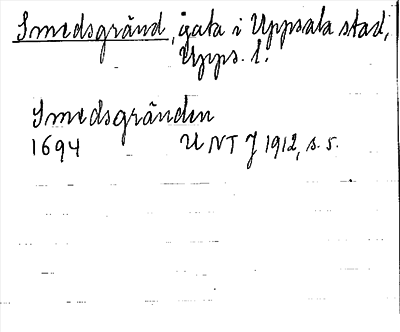 Smedsgränd, gata i Uppsala stad,
Upps. l.
Smedsgränden
1694 UNT J 1912, s. 5.